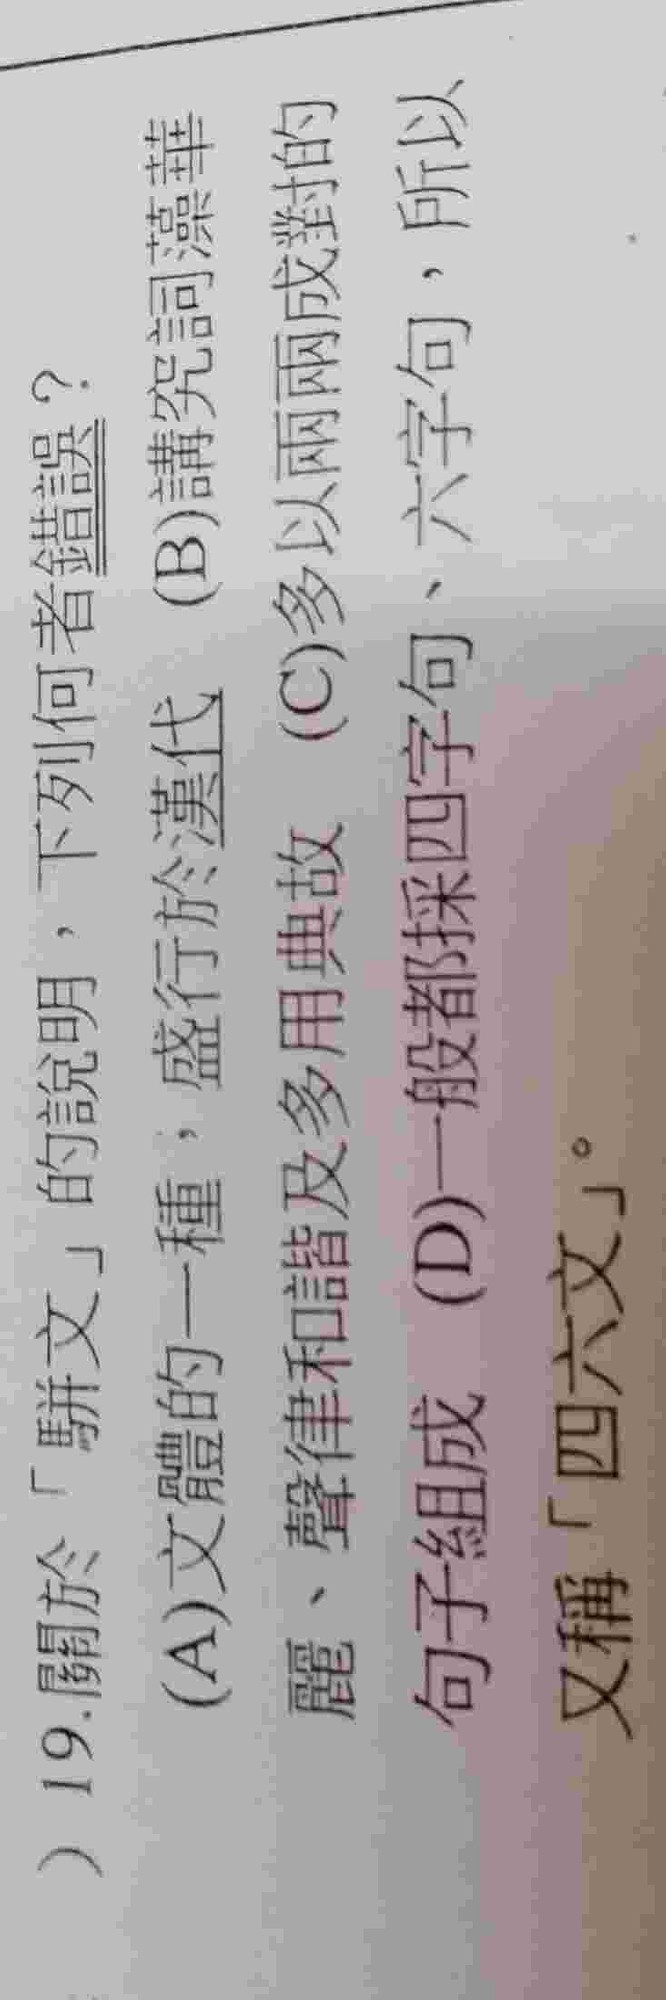 ) 19.關於「駢文」的說明，下列何者錯誤？
(A)文體的一種；盛行於漢代　(B)講究詞藻華
麗、聲律和諧及多用典故　(C)多以兩兩成對的
句子組成　(D)一般都採四字句、六字句，所以
又稱「四六文」。